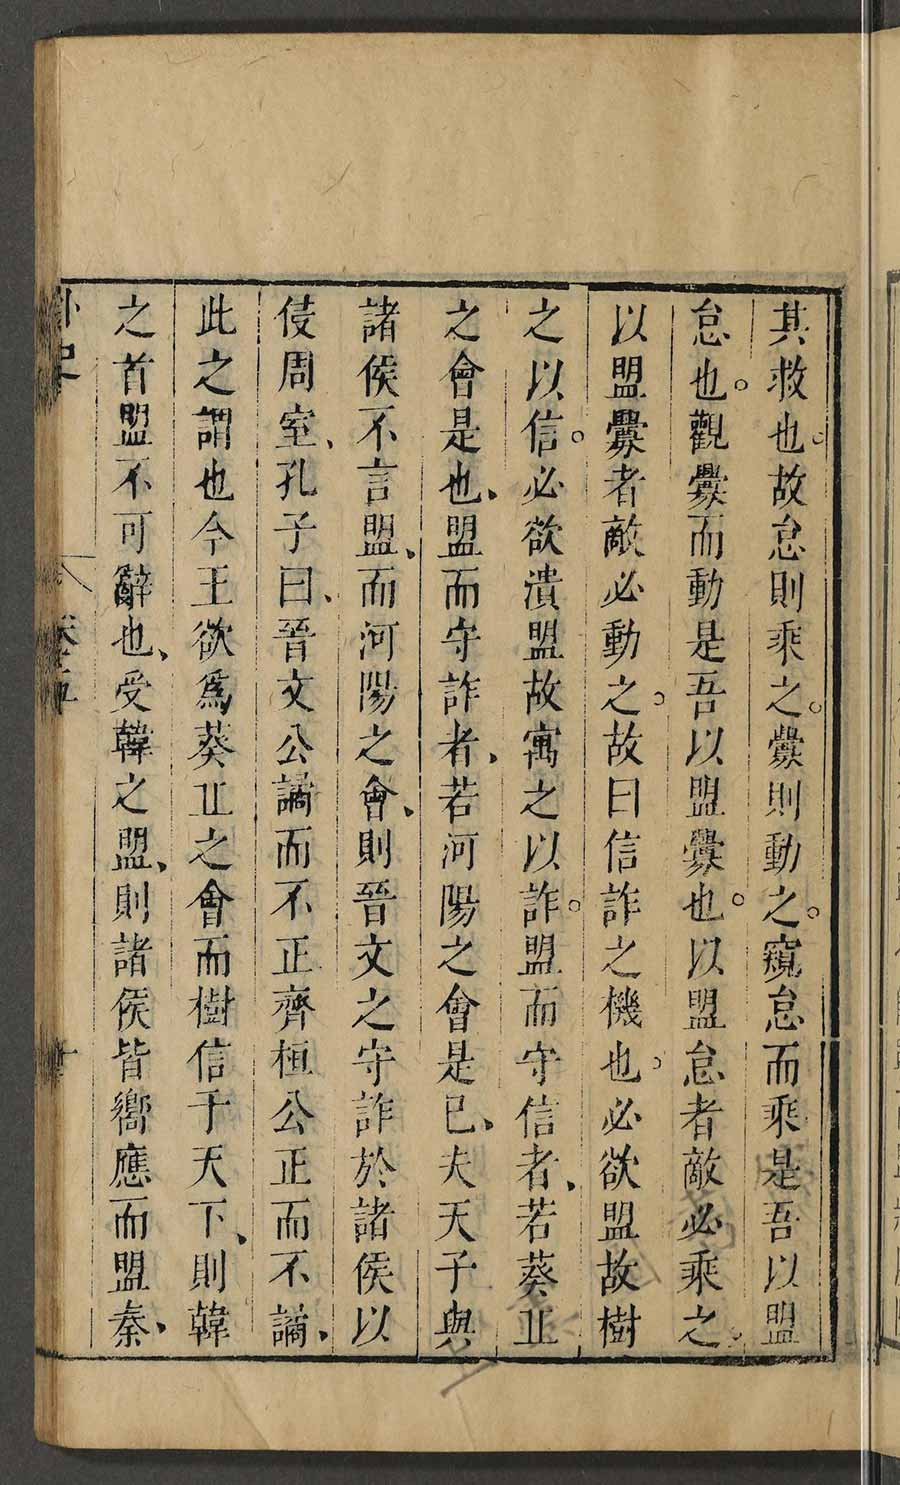 其救也故怠則乘之釁則動之窺怠而乘是吾以盟
怠也觀釁而動是吾以盟釁也以盟怠者敵必乘之
以盟釁者敵必動之故曰信詐之機也必欲盟故樹
之以信必欲潰盟故寓之以詐盟而守信者若葵丘
之會是也盟而守詐者若河陽之會是已夫天子與
諸侯不言盟而河陽之會則晉文之守詐於諸侯以
侵周室孔子曰晉文公譎而不正齊桓公正而不譎
此之謂也今王欲爲葵丘之會而樹信于天下則韓
之首盟不可辭也受韓之盟則諸侯皆嚮應而盟秦
卷五